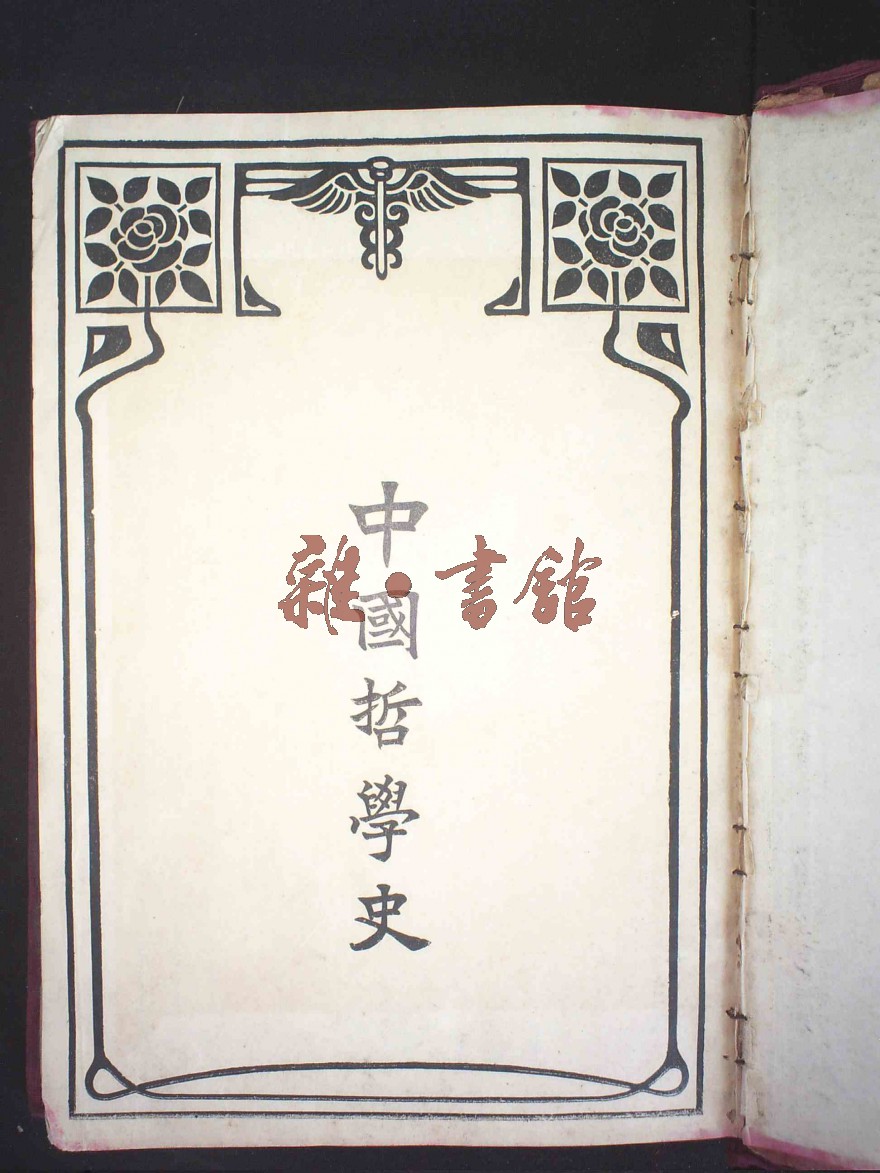 中國哲學史
雜·書館